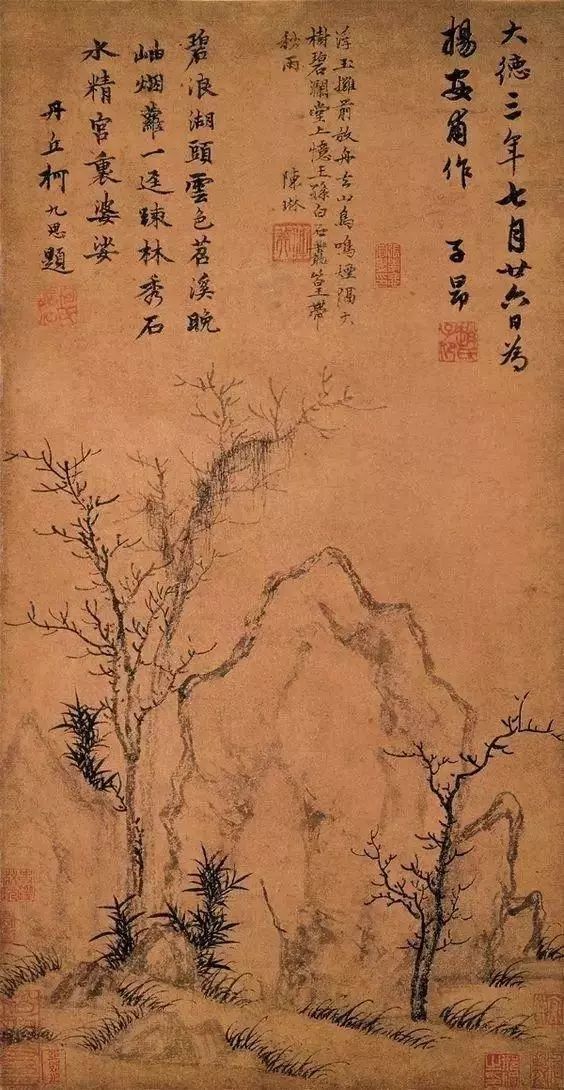 大德三年七月廿六日為
楊安甫作 子昂
浮玉攤前放舟去山鳥鳴煙隔大
樹碧瀾堂上憶王孫白石叢篁帶
秋雨 陳琳
碧浪湖頭雲色苕溪晚
岫烟蘿一逕踈林秀石
水精宮裏婆娑
丹丘柯九思題